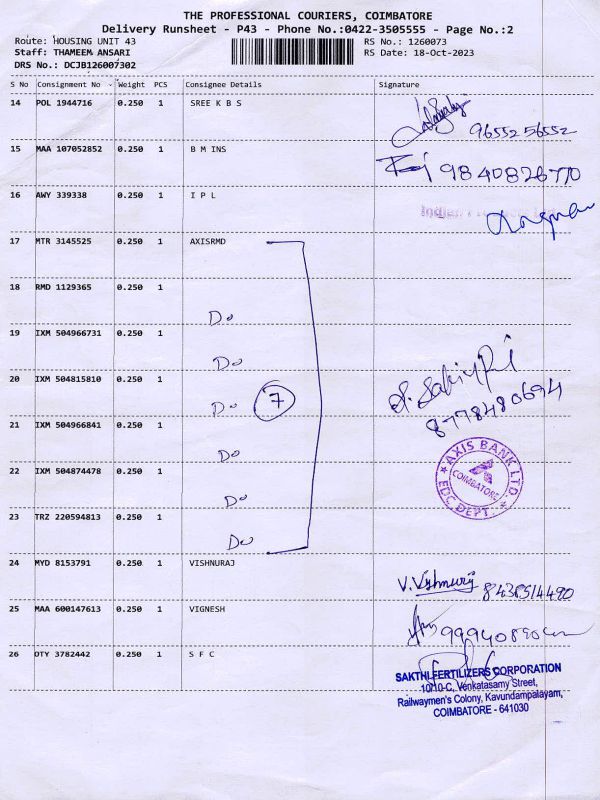 THE PROFESSIONAL COURIERS, COIMBATORE
Delivery Runsheet - P43 - Phone No.:0422-3505555 - Page No.:2
Route: HOUSING UNIT 43
RS No.: 1260073
Staff: THAMEEM ANSARI
RS Date: 18-Oct-2023
DRS No.: DCJB126007302
S No Consignment No Weight PCS Consignee Details Signature
14 POL 1944716 0.250 1 SREE K B S
96552 56552
15 MAA 107052852 0.250 1 B M INS
9840826770
16 AWY 339338 0.250 1 I P L
17 MTR 3145525 0.250 1 AXISRMD
18 RMD 1129365 0.250 1
Do
19 IXM 504966731 0.250 1
Do
20 IXM 504815810 0.250 1
Do 7
8778480694
21 IXM 504966841 0.250 1
Do
AXIS BANK LTD.
COIMBATORE
EDC DEPT.
22 IXM 504874478 0.250 1
Do
23 TRZ 220594813 0.250 1
Do
24 MYD 8153791 0.250 1 VISHNURAJ
25 MAA 600147613 0.250 1 VIGNESH
26 OTY 3782442 0.250 1 S F C
SAKTHI FERTILIZERS CORPORATION
10/10-C, Venkatasamy Street,
Railwaymen's Colony, Kavundampalayam,
COIMBATORE - 641030